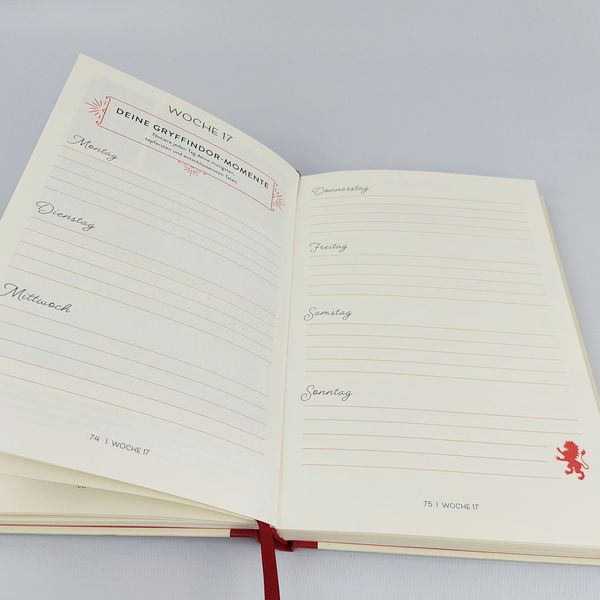 WOCHE 17
DEINE GRYFFINDOR-MOMENTE
Notiere jeden Tag deine mutigsten,
tapfersten und entschlossensten Taten.
Montag
Dienstag
Mittwoch
74 | WOCHE 17
Donnerstag
Freitag
Samstag
Sonntag
75 | WOCHE 17